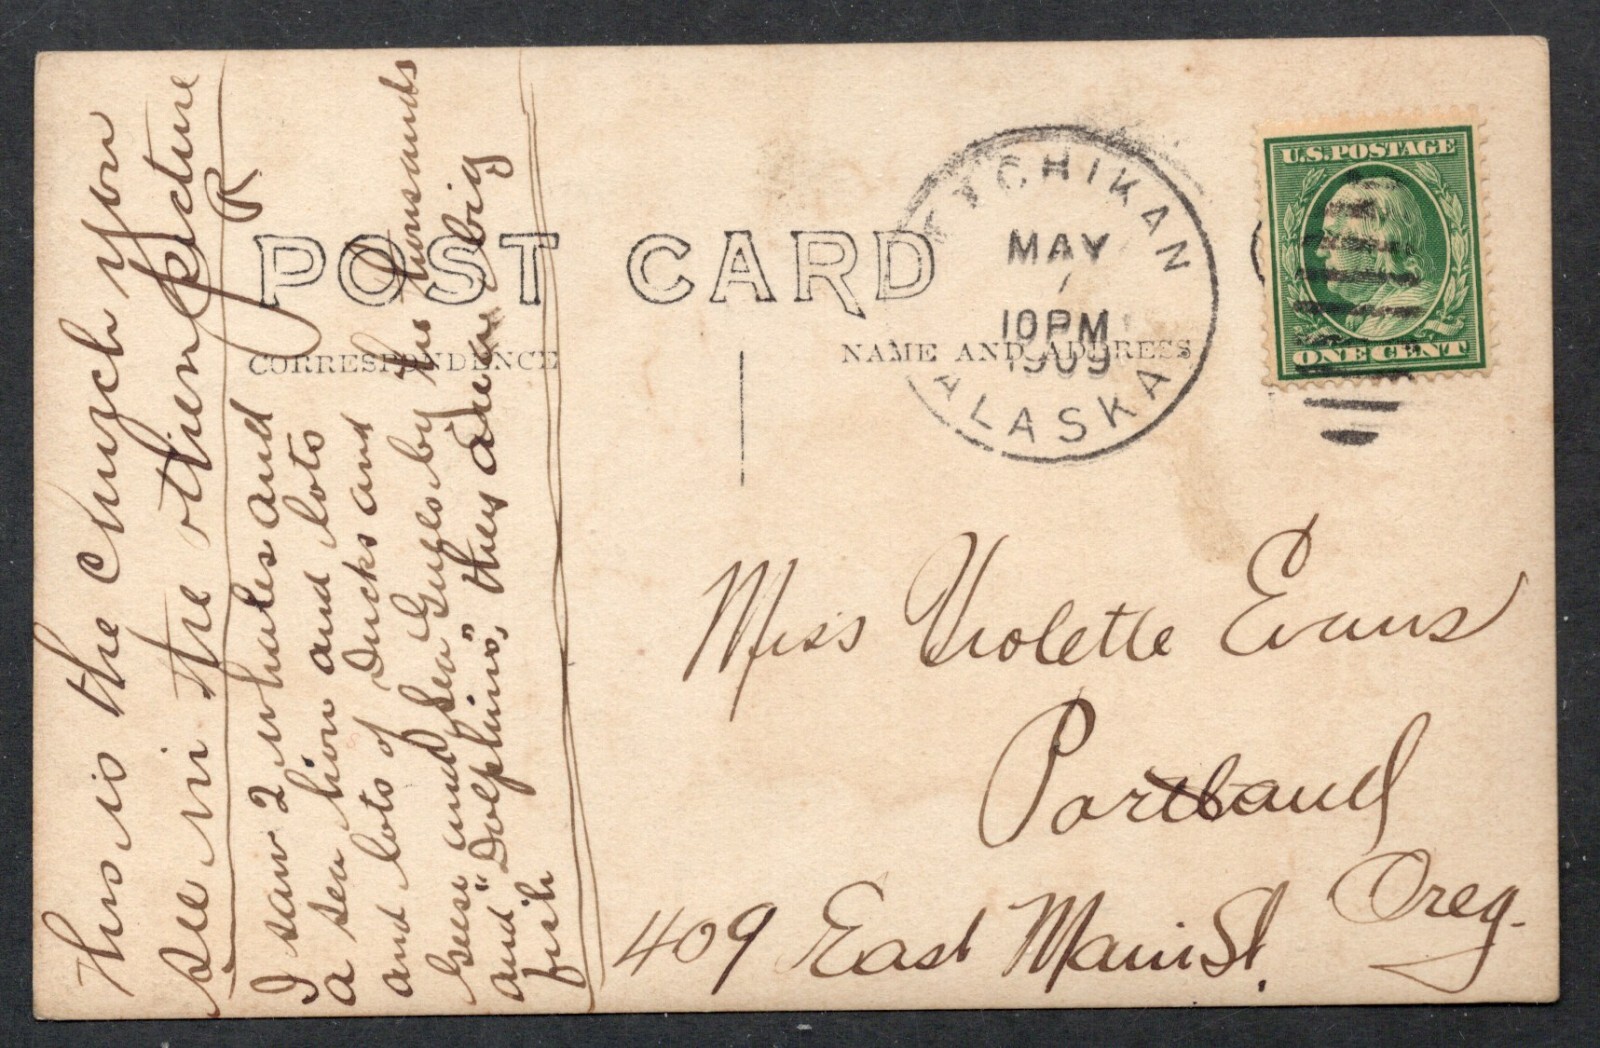 This is the Church you
see in the other picture
R
I saw 2 whales and
a sea lion and lots
and lots of Ducks and
Geese and Sea Gulls by the thousands
and "Dolphins", they are a big
fish
POST CARD
CORRESPONDENCE
NAME AND ADDRESS
KETCHIKAN
MAY
1
10 PM
1909
ALASKA.
U.S. POSTAGE
ONE CENT
Miss Violette Evans
Portland
Oreg.
409 East Main St.